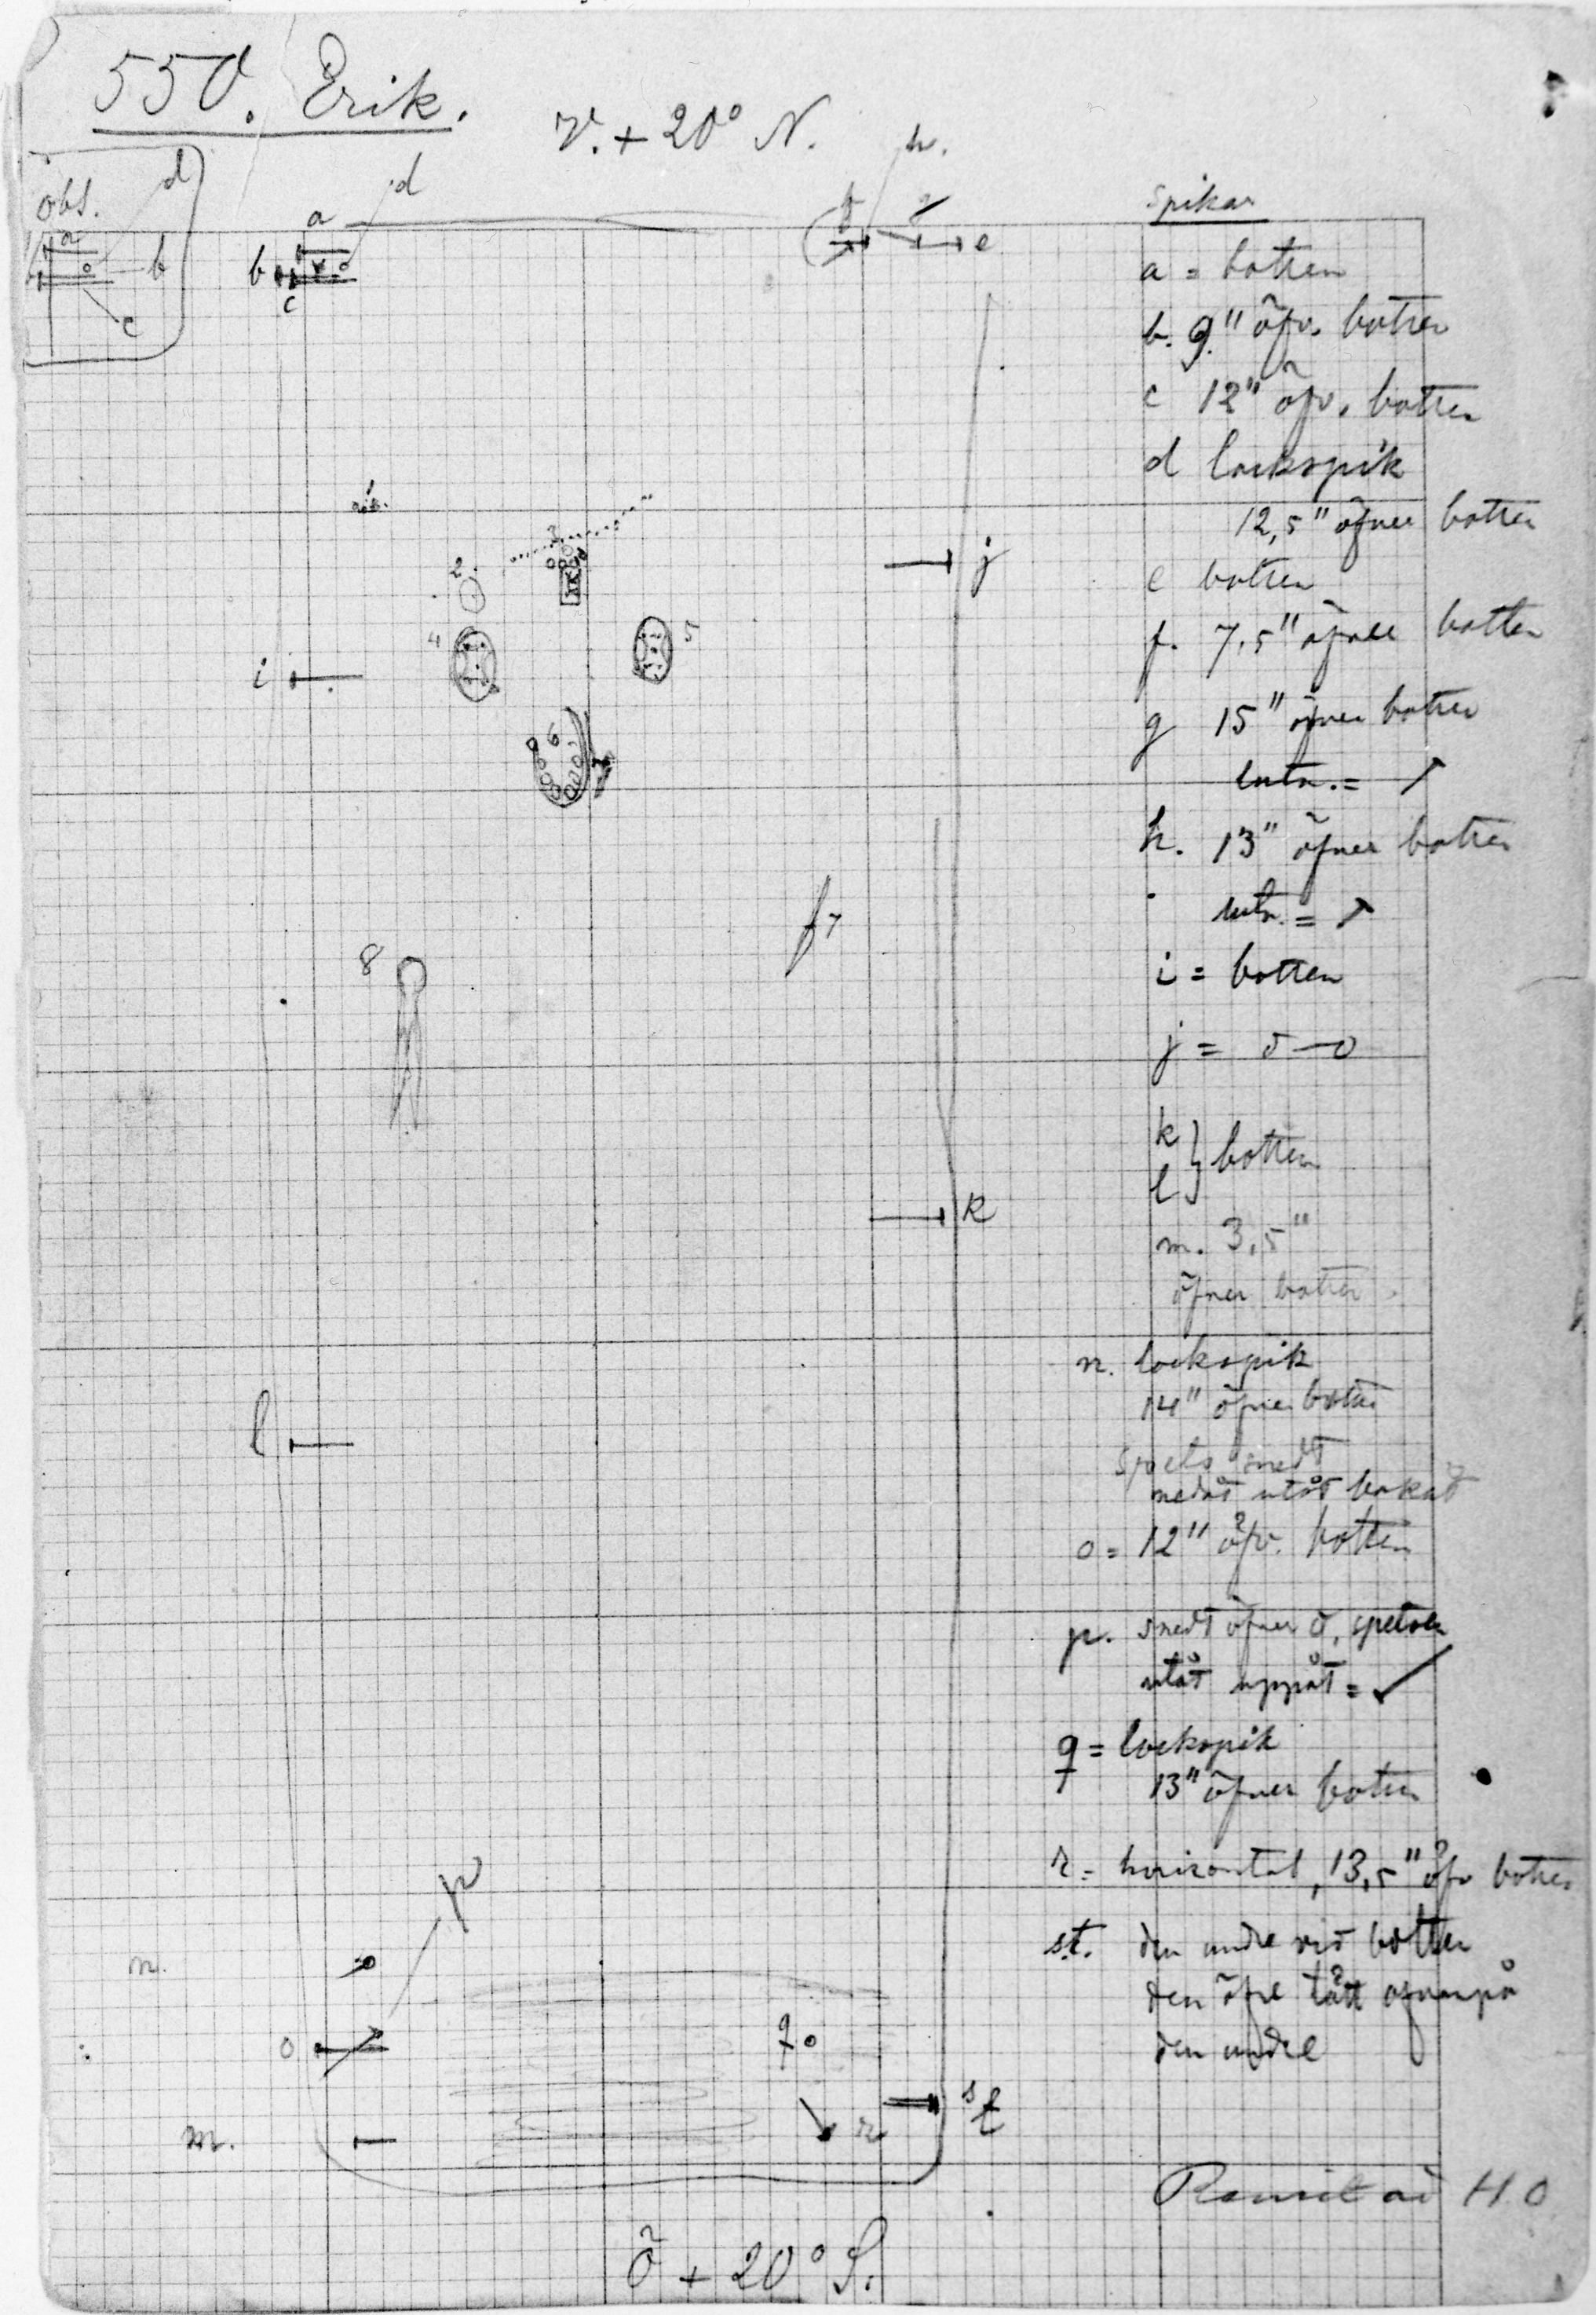 550. Erik.
V. + 20° N.
h.
obs.
d
a
b
c
a
d
b
c
f
g
e
Spikar
a = botten
b. 9" öfv. botten
c 12" öfv. botten
d lockspik
12,5" öfver botten
e botten
f. 7,5" öfver botten
g 15" öfver botten
lutn. =
h. 13" öfver botten
lutn. =
i = botten
j = o—o
k } botten
l
m. 3,5"
öfver botten
n. lockspik
14" öfver botten
spets snedt
nedåt utåt bakåt
o = 12" öfv. botten
p. snedt öfver o, spetsen
utåt uppåt =
q = lockspik
13" öfver botten
r = horizontal, 13,5" öfv botten
s.t. den undre vid botten
den öfre tätt ofvanpå
den undre
1
2
3
j
4
5
i
6
7
8
k
l
p
n.
o
q
m.
r
s t
Ö + 20° S.
H.O